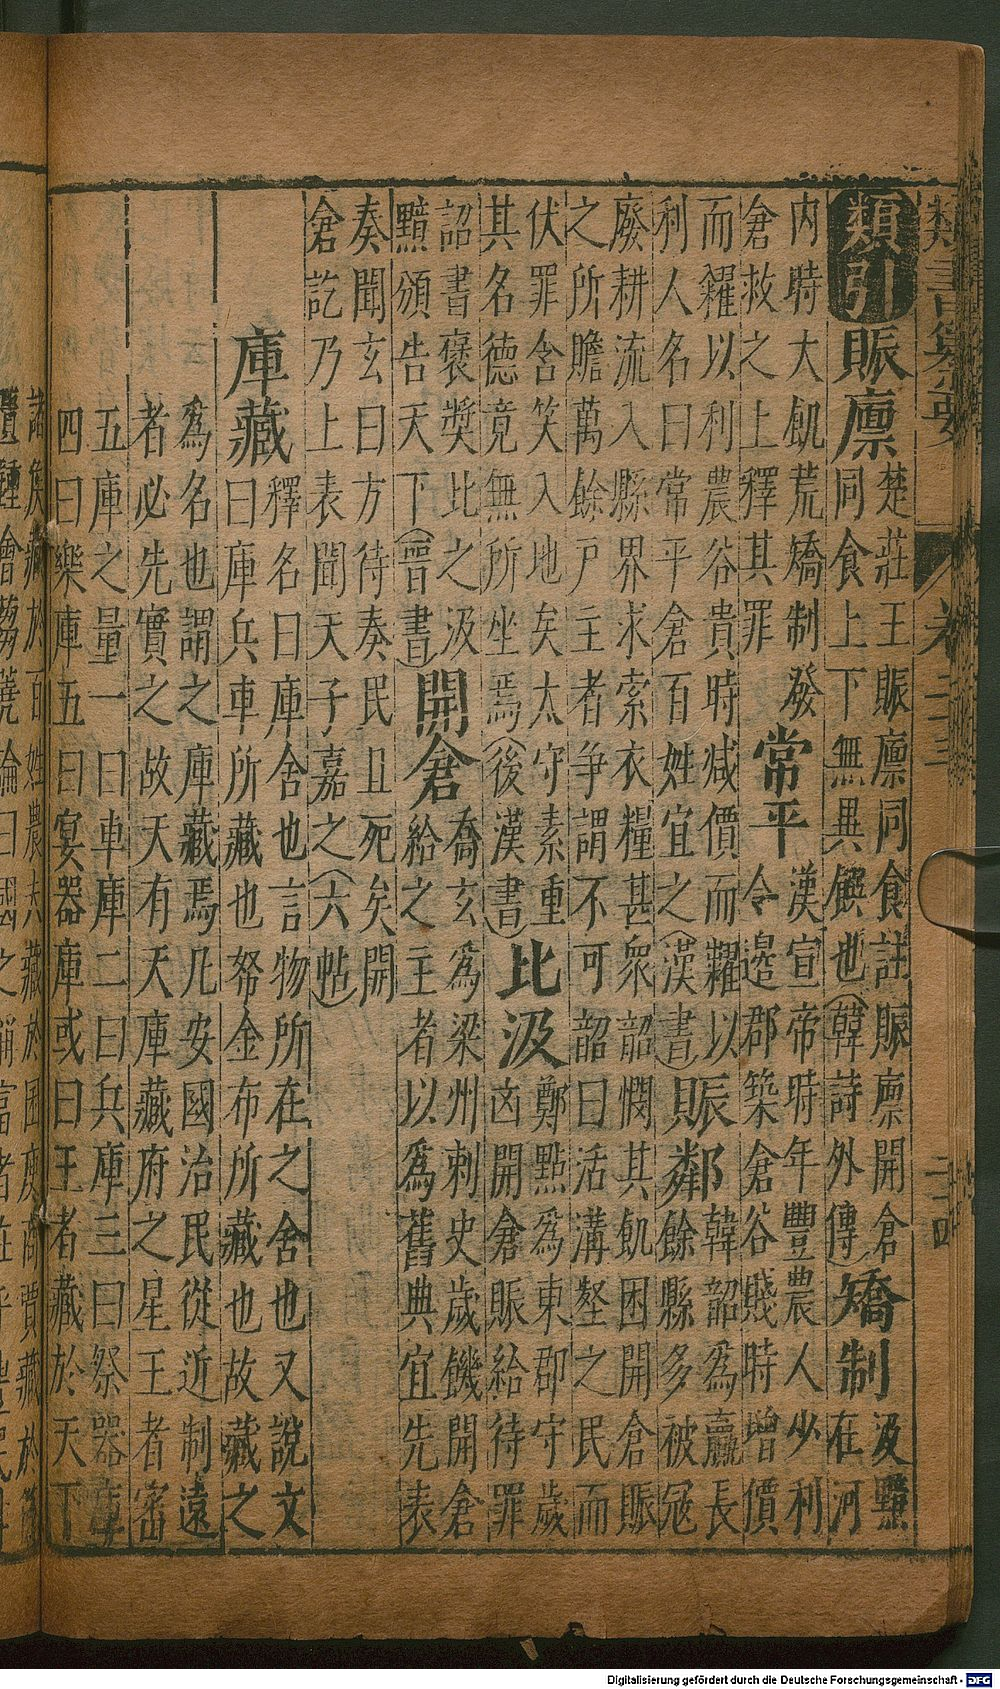 類書纂要
卷二十三
二十四
類引
賑廩
楚莊王賑廩同食註賑廩開倉
同食上下無異饌也(韓詩外傳)
矯制
汲黯
在河
内時大飢荒矯制發
倉救之上釋其罪
常平
漢宣帝時年豐農人少利
令邊郡築倉谷賤時增價
而糴以利農谷貴時减價而糶以
利人名曰常平倉百姓宜之(漢書)
賑鄰
韓韶為嬴長
餘縣多被冦
廢耕流入縣界求索衣糧甚衆韶憫其飢困開倉賑
之所贍萬餘戶主者爭謂不可韶曰活溝壑之民而
伏罪含笑入地矣太守素重
其名德竟無所坐焉(後漢書)
比汲
鄭點為東郡守歲
凶開倉賑給待罪
詔書褒奬比之汲
黯頒告天下(晋書)
開倉
喬玄為梁州刺史歲饑開倉
給之主者以為舊典宜先表
奏聞玄曰方待奏民且死矣開
倉訖乃上表聞天子嘉之(六帖)
庫藏
釋名曰庫舍也言物所在之舍也又說文
曰庫兵車所藏也帑金布所藏也故藏之
為名也謂之庫藏焉凡安國治民從近制遠
者必先實之故天有天庫藏府之星王者密
五庫之量一曰車庫二曰兵庫三曰祭器庫
四曰樂庫五曰宴器庫或曰王者藏於天下
諸侯藏於百姓農夫藏於囷庾商賈藏於篋
匱鍾會蒭蕘論曰國之稱富者在乎豐民
Digitalisierung gefördert durch die Deutsche Forschungsgemeinschaft - DFG